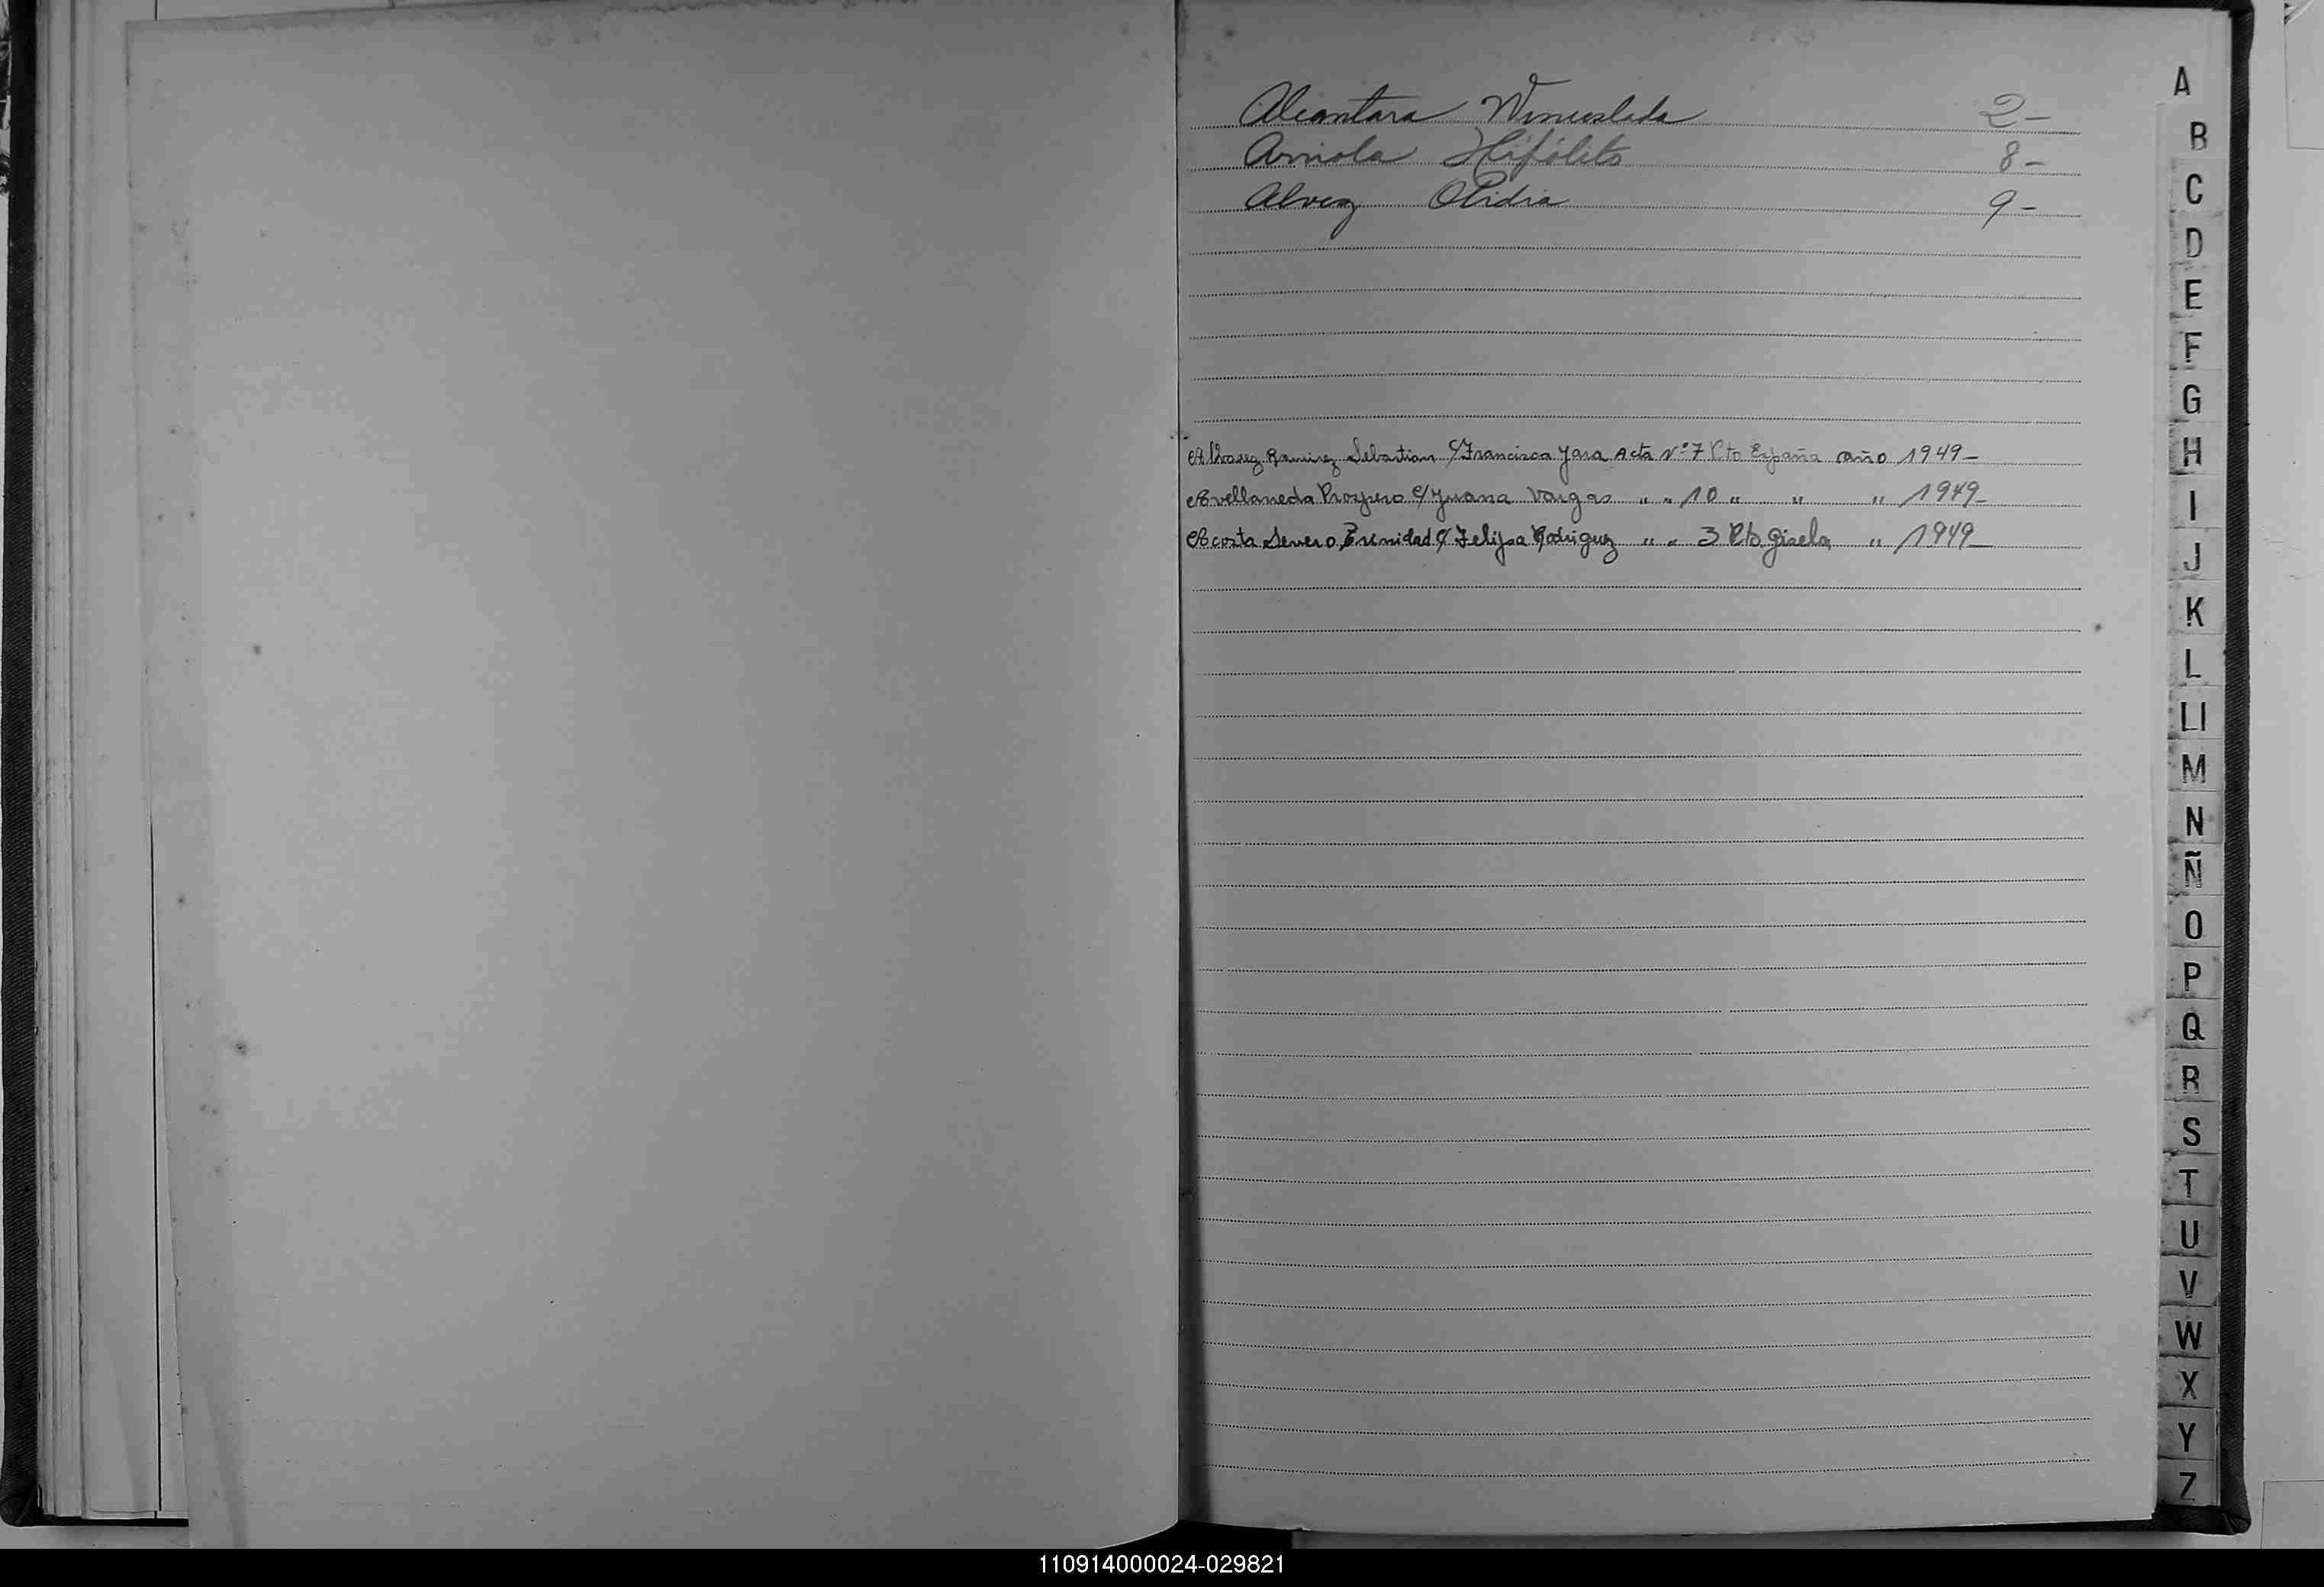 Alcantara Wenceslada 2-
Arriola Hipólito 8-
Alvez Olidia 9-
Alvarez Ramirez Sebastian c/Francisca Jara Acta Nº 7 Pto España año 1949-
Avellaneda Prospero c/Juana Vargas " " 10 " " " 1949-
Acosta Severo Trinidad c/ Felipa Rodriguez " " 3 Pto Gisela " 1949-
A
B
C
D
E
F
G
H
I
J
K
L
Ll
M
N
Ñ
O
P
Q
R
S
T
U
V
W
X
Y
Z
110914000024-029821